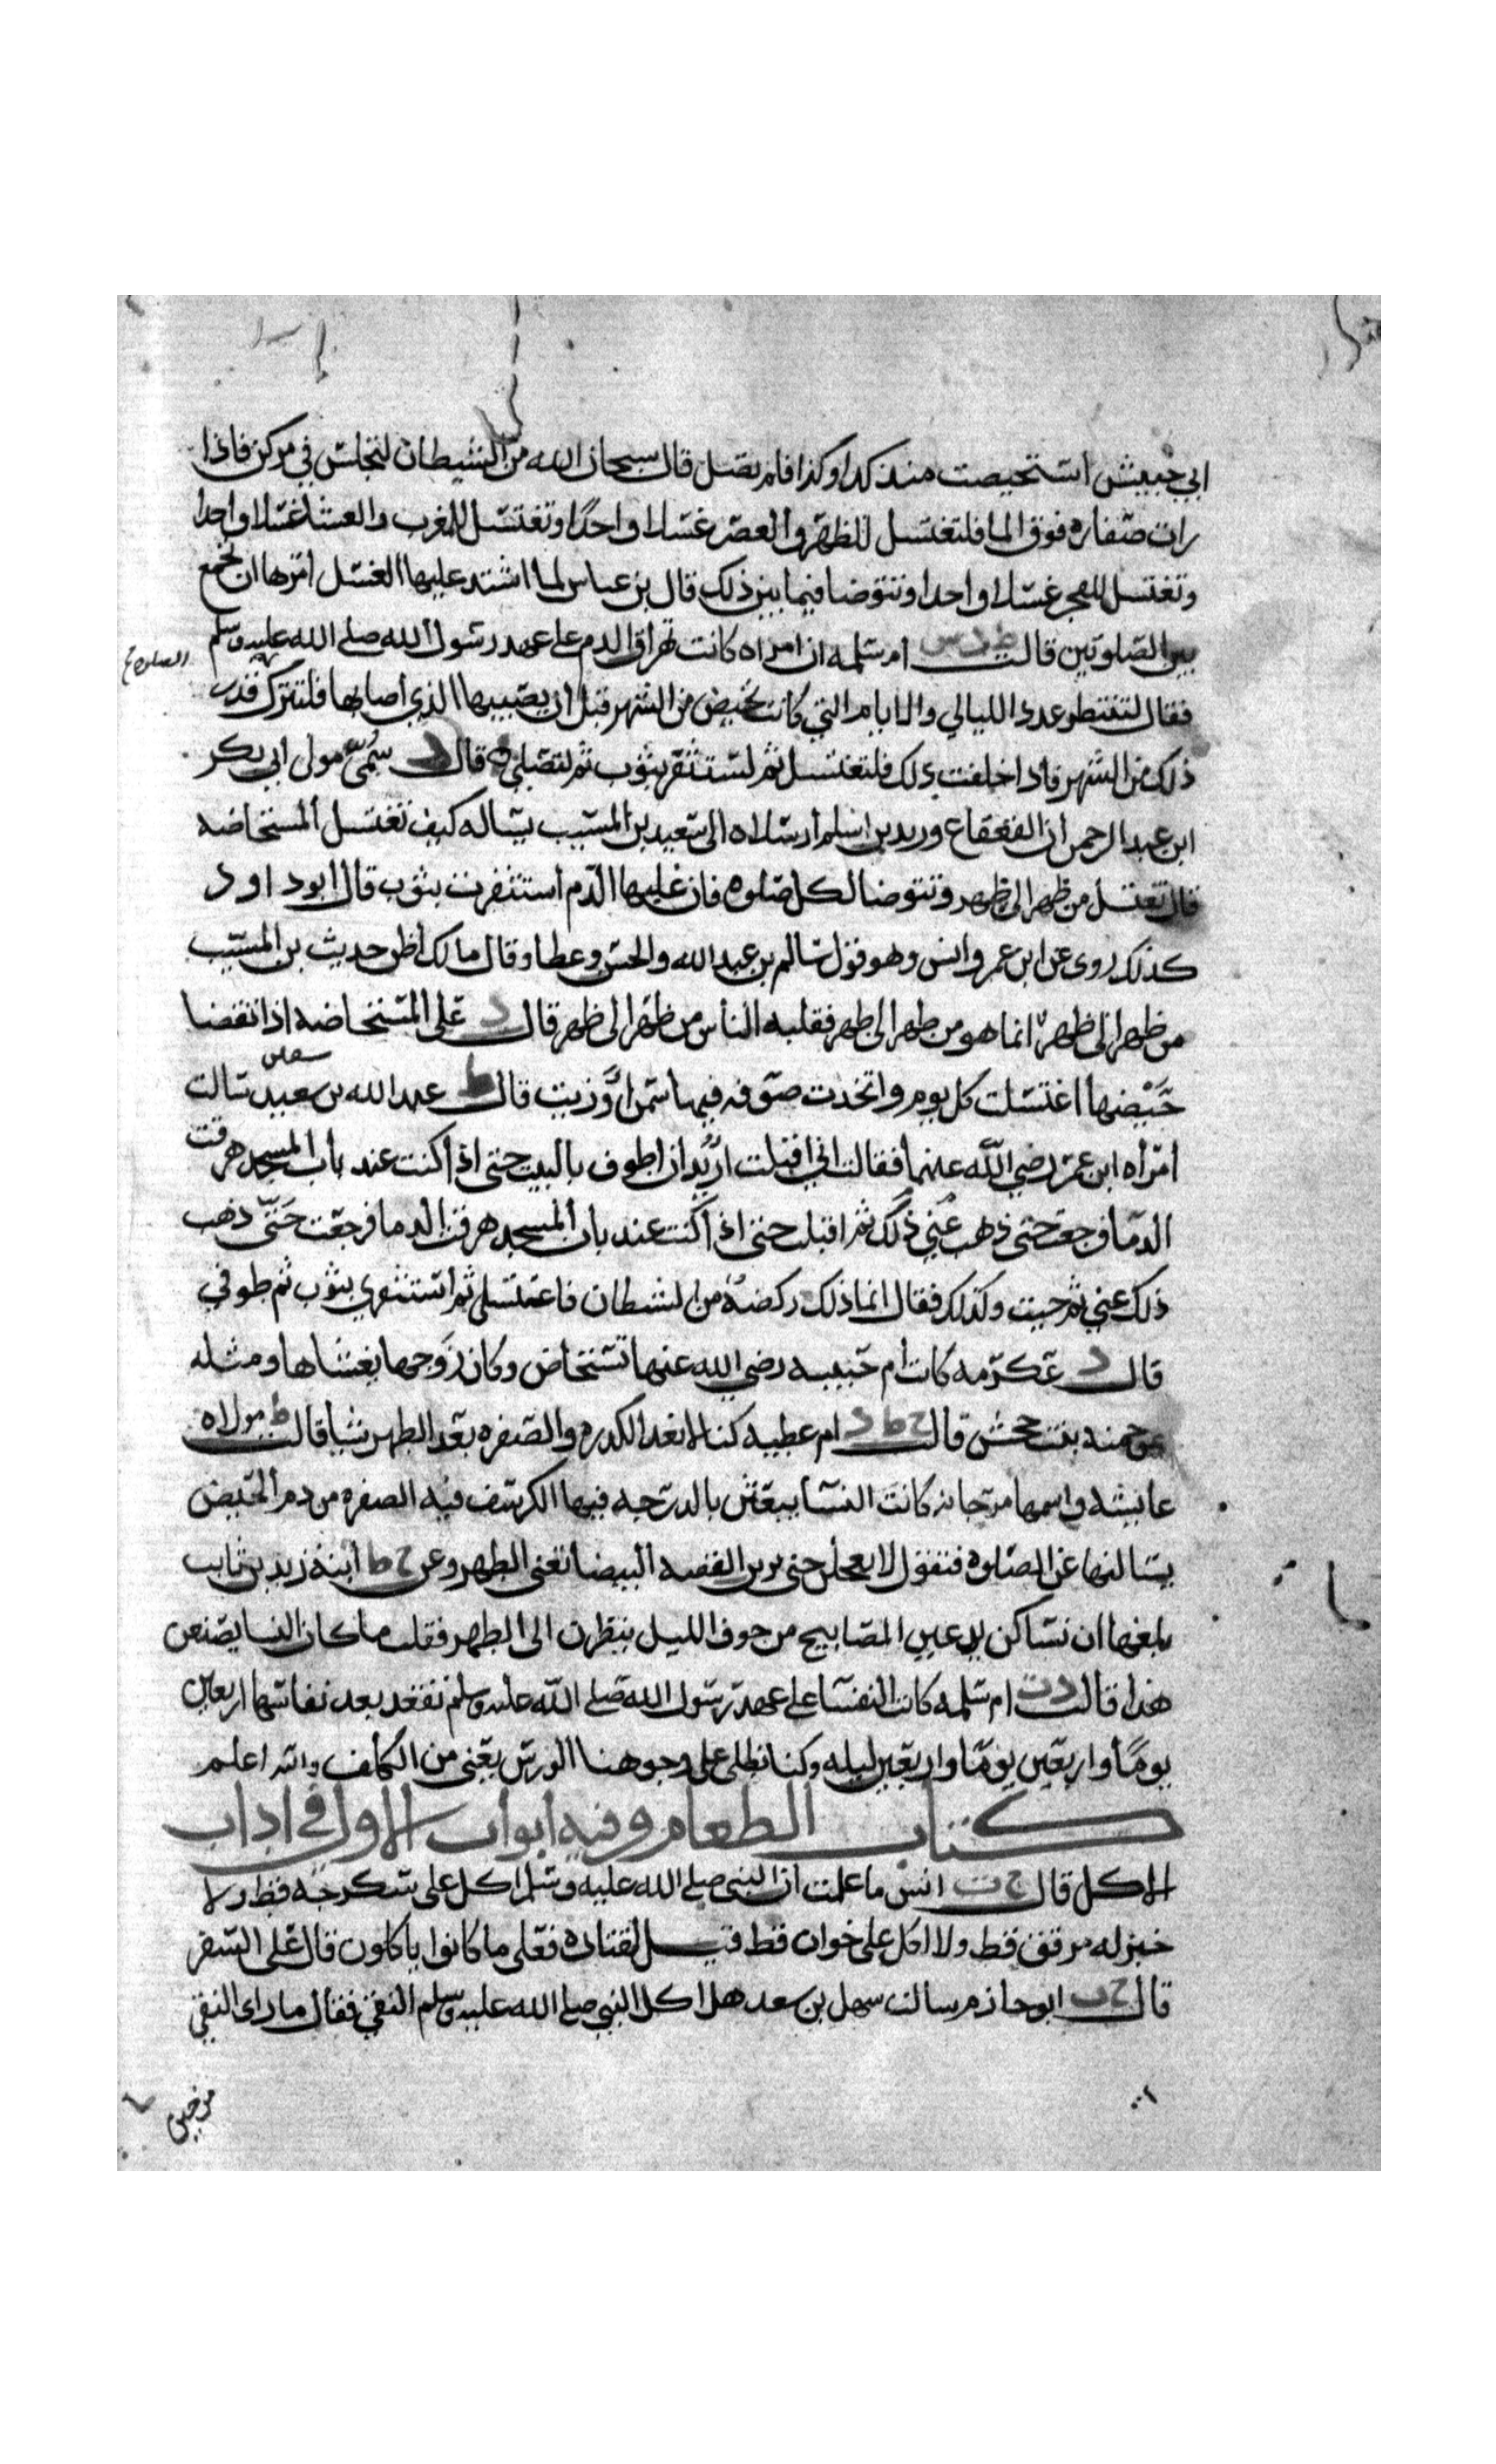 ابي حبيش استحيضت منذ كذا وكذا فلم تصل قال سبحان الله من الشيطان لتجلس في مركن فاذا
رات صفارة فوق الما فلتغتسل للظهر والعصر غسلا واحدا وتغتسل للمغرب والعشا غسلا واحدا
وتغتسل للفجر غسلا واحدا وتتوضا فيما بين ذلك قال بن عباس لما اشتد عليها الغسل امرها ان تجمع
بين الصلوتين قالت ط د س ام سلمه ان امراه كانت تهراق الدم على عهد رسول الله صلى الله عليه وسلم
الصلاه
فقال لتنتظر عدد الليالي والايام التي كانت تحيض من الشهر قبل ان يصيبها الذي اصابها فلتترك قدر
ذلك من الشهر فاذا خلفت ذلك فلتغتسل ثم لتستثفر بثوب ثم لتصلي قال د سمي مولى ابي بكر
ابن عبد الرحمن ان القعقاع وزيد بن اسلم ارسلاه الى سعيد بن المسيب يساله كيف تغتسل المستحاضه
قال تغتسل من ظهر الى ظهر وتتوضا لكل صلوه فان غلبها الدم استثفرت بثوب قال ابو داود
كذلك روى عن ابن عمر وانس وهو قول سالم بن عبد الله والحسن وعطا وقال مالك اظن حديث بن المسيب
من ظهر الى ظهر انما هو من طهر الى طهر فقلبه الناس من ظهر الى ظهر قال د على المستحاضه اذا انقضا
حيضها اغتسلت كل يوم واتخذت صوفه فيها سمن او زيت قال ط عبد الله بن سعيد سالت
امراه ابن عمر رضي الله عنهما فقالت اني اقبلت اريد ان اطوف بالبيت حتى اذا كنت عند باب المسجد هرقت
الدما فرجعت حتى ذهب عني ذلك ثم اقبلت حتى اذا كنت عند باب المسجد هرقت الدما فرجعت حتى ذهب
ذلك عني ثم جيت وكذلك فقال انما ذلك ركضه من الشيطان فاغتسلي ثم استثفري بثوب ثم طوفي
قال د عكرمه كانت ام حبيبه رضي الله عنها تستحاض وكان زوجها يغشاها ومثله
عن حمنه بنت جحش قالت خ ط د ام عطيه كنا لا نعد الكدره والصفره بعد الطهر شيا قالت ط مولاه
عايشه واسمها مرجانه كانت النسا يبعثن بالدرجه فيها الكرسف فيه الصفره من دم الحيض
يسالنها عن الصلوه فتقول لا تعجلن حتى ترين القصه البيضا تعني الطهر وعن خ ط ابنة زيد بن ثابت
بلغها ان نسا كن يدعين المصابيح من جوف الليل ينظرن الى الطهر فقلت ما كان النسا يصنعن
هذا قالت د ت ام سلمه كانت النفسا على عهد رسول الله صلى الله عليه وسلم تقعد بعد نفاسها اربعين
يوما واربعين يوما واربعين ليله وكنا نطلى على وجوهنا الورس يعني من الكلف والله اعلم
كتاب الطعام وفيه ابواب الاول في اداب
الاكل قال خ ت انس ما علمت ان النبي صلى الله عليه وسلم اكل على سكرجه قط ولا
خبز له مرقق قط ولا اكل على خوان قط قيل لقتاده فعلى ما كانوا ياكلون قال على السفر
قال خ ت ابو حازم سالت سهل بن سعد هل اكل النبي صلى الله عليه وسلم النقي فقال ما راى النقي
من حين